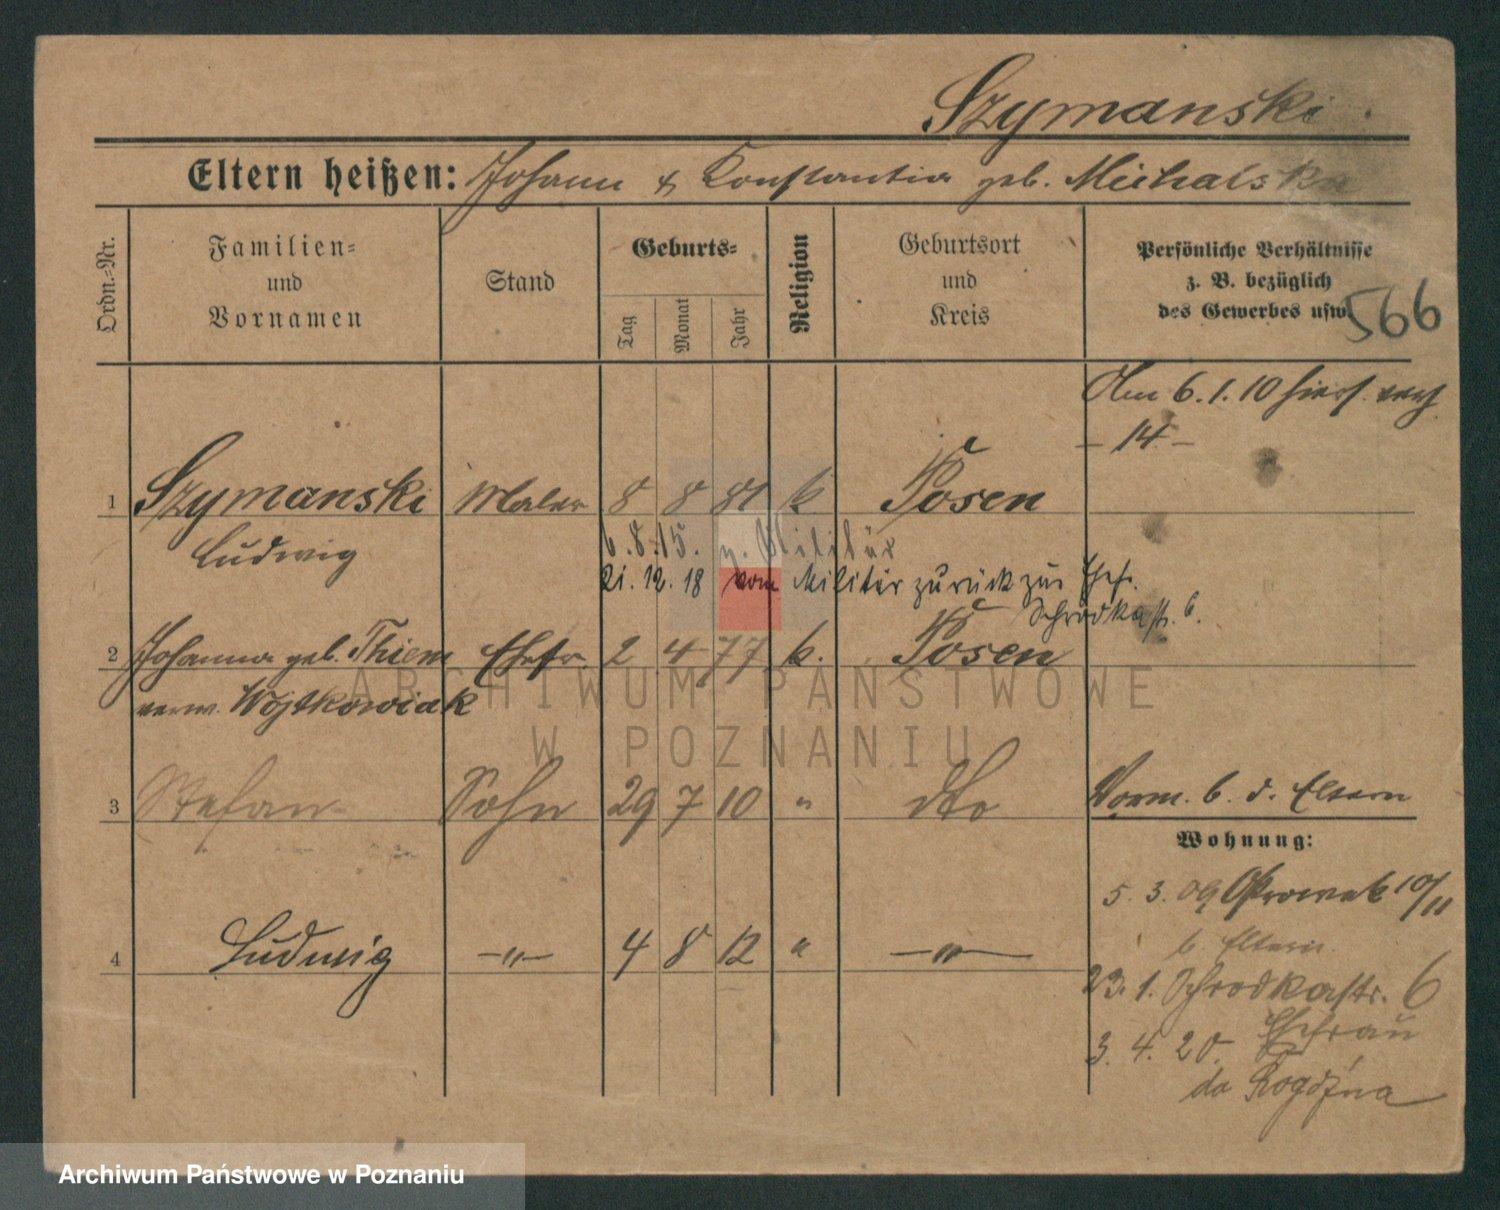 Szymanski
Eltern heißen: Johann & Konstantia geb. Michalska
Ordn.=Nr.
Familien=
und
Vornamen
Stand
Geburts=
Tag
Monat
Jahr
Religion
Geburtsort
und
Kreis
Persönliche Verhältnisse
z. B. bezüglich
des Gewerbes usw.
566
Am 6.1.10 hier verh.
- 14 -
1 Szymanski Maler 8 8 81 k. Posen
Ludwig
6.8.15. z. Militär
21.12.18 vom Militär zurück zur Ehefr.
Schrodkastr. 6.
2 Johanna geb. Thiem Ehefr. 2 4 77 k. Posen
verw. Wojtkowiak
3 Stefan Sohn 29 7 10 " dto
Vorm. b. d. Eltern
Wohnung:
5. 3. 09 Ostrowek 10/11
b. Eltern
4 Ludwig -"- 4 8 12 " -"-
23. 1. Schrodkastr. 6
3. 4. 20. Ehefrau
do Rogoźna
ARCHIWUM PAŃSTWOWE
W POZNANIU
Archiwum Państwowe w Poznaniu